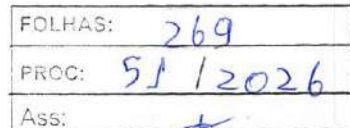 FOLHAS: 269
PROC: 51 / 2026
Ass: